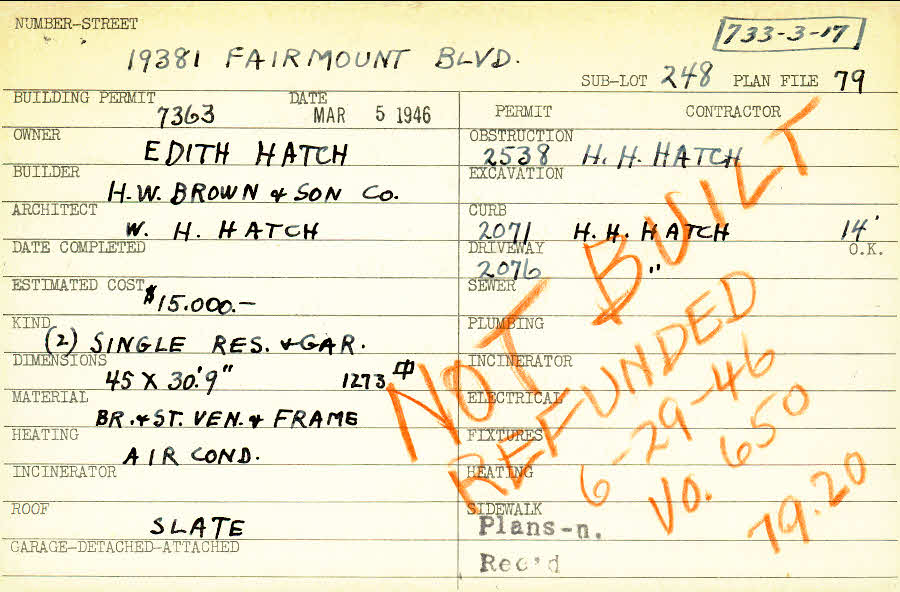 NUMBER-STREET
733-3-17
19381 FAIRMOUNT BLVD.
SUB-LOT 248 PLAN FILE 79
BUILDING PERMIT 7363 DATE MAR 5 1946
OWNER EDITH HATCH
BUILDER H.W. BROWN & SON CO.
ARCHITECT W. H. HATCH
DATE COMPLETED
ESTIMATED COST $15.000.—
KIND (2) SINGLE RES. & GAR.
DIMENSIONS 45 X 30'.9" 1273
MATERIAL BR. & ST. VEN. & FRAME
HEATING AIR COND.
INCINERATOR
ROOF SLATE
GARAGE-DETACHED-ATTACHED
PERMIT CONTRACTOR
OBSTRUCTION 2538 H. H. HATCH
EXCAVATION
CURB 2071 H. H. HATCH 14'
DRIVEWAY 2076 " O.K.
SEWER
PLUMBING
INCINERATOR
ELECTRICAL
FIXTURES
HEATING
SIDEWALK
Plans-n.
Rec'd
NOT BUILT
REFUNDED
6-29-46
VO. 650
79.20